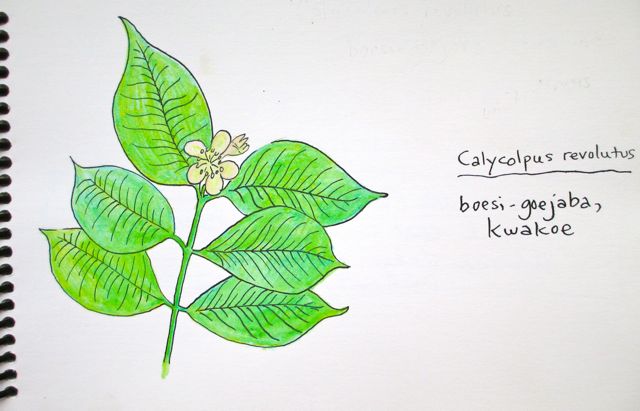 Calycolpus revolutus
boesi-goejaba,
kwakoe